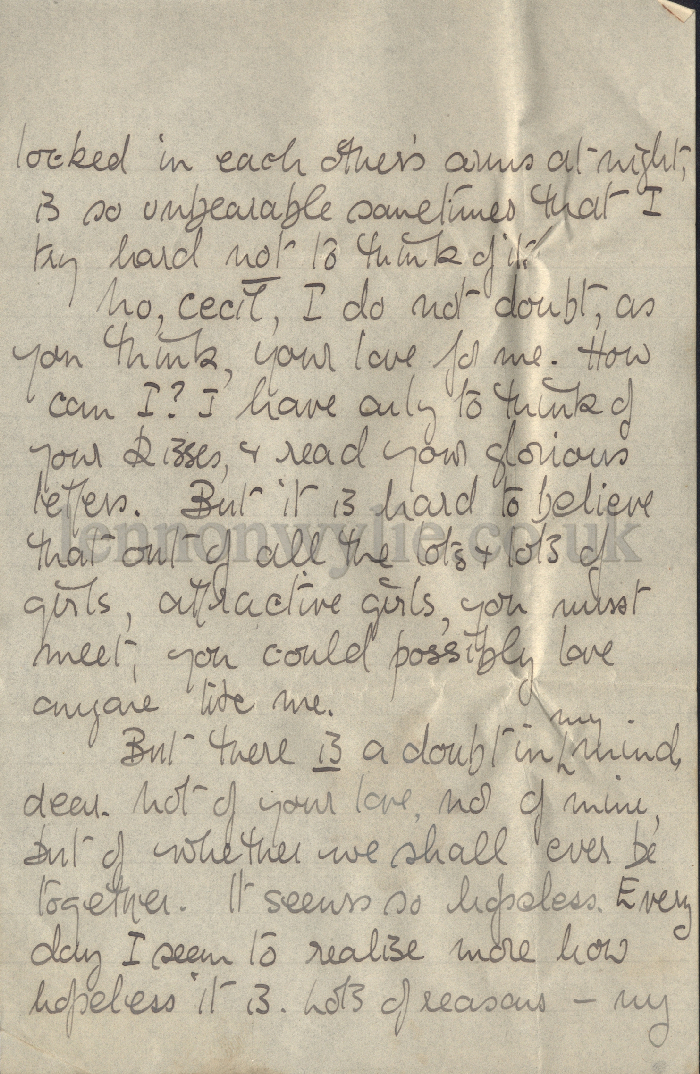 locked in each other's arms at night,
is so unbearable sometimes that I
try hard not to think of it.
No, Cecil, I do not doubt, as
you think, your love for me. How
can I? I have only to think of
your kisses, & read your glorious
letters. But it is hard to believe
lennonwylie.co.uk
that out of all the lots & lots of
girls, attractive girls, you must
meet, you could possibly love
anyone like me.
But there is a doubt in my mind,
dear. Not of your love, nor of mine,
but of whether we shall ever be
together. It seems so hopeless. Every
day I seem to realise more how
hopeless it is. Lots of reasons – my